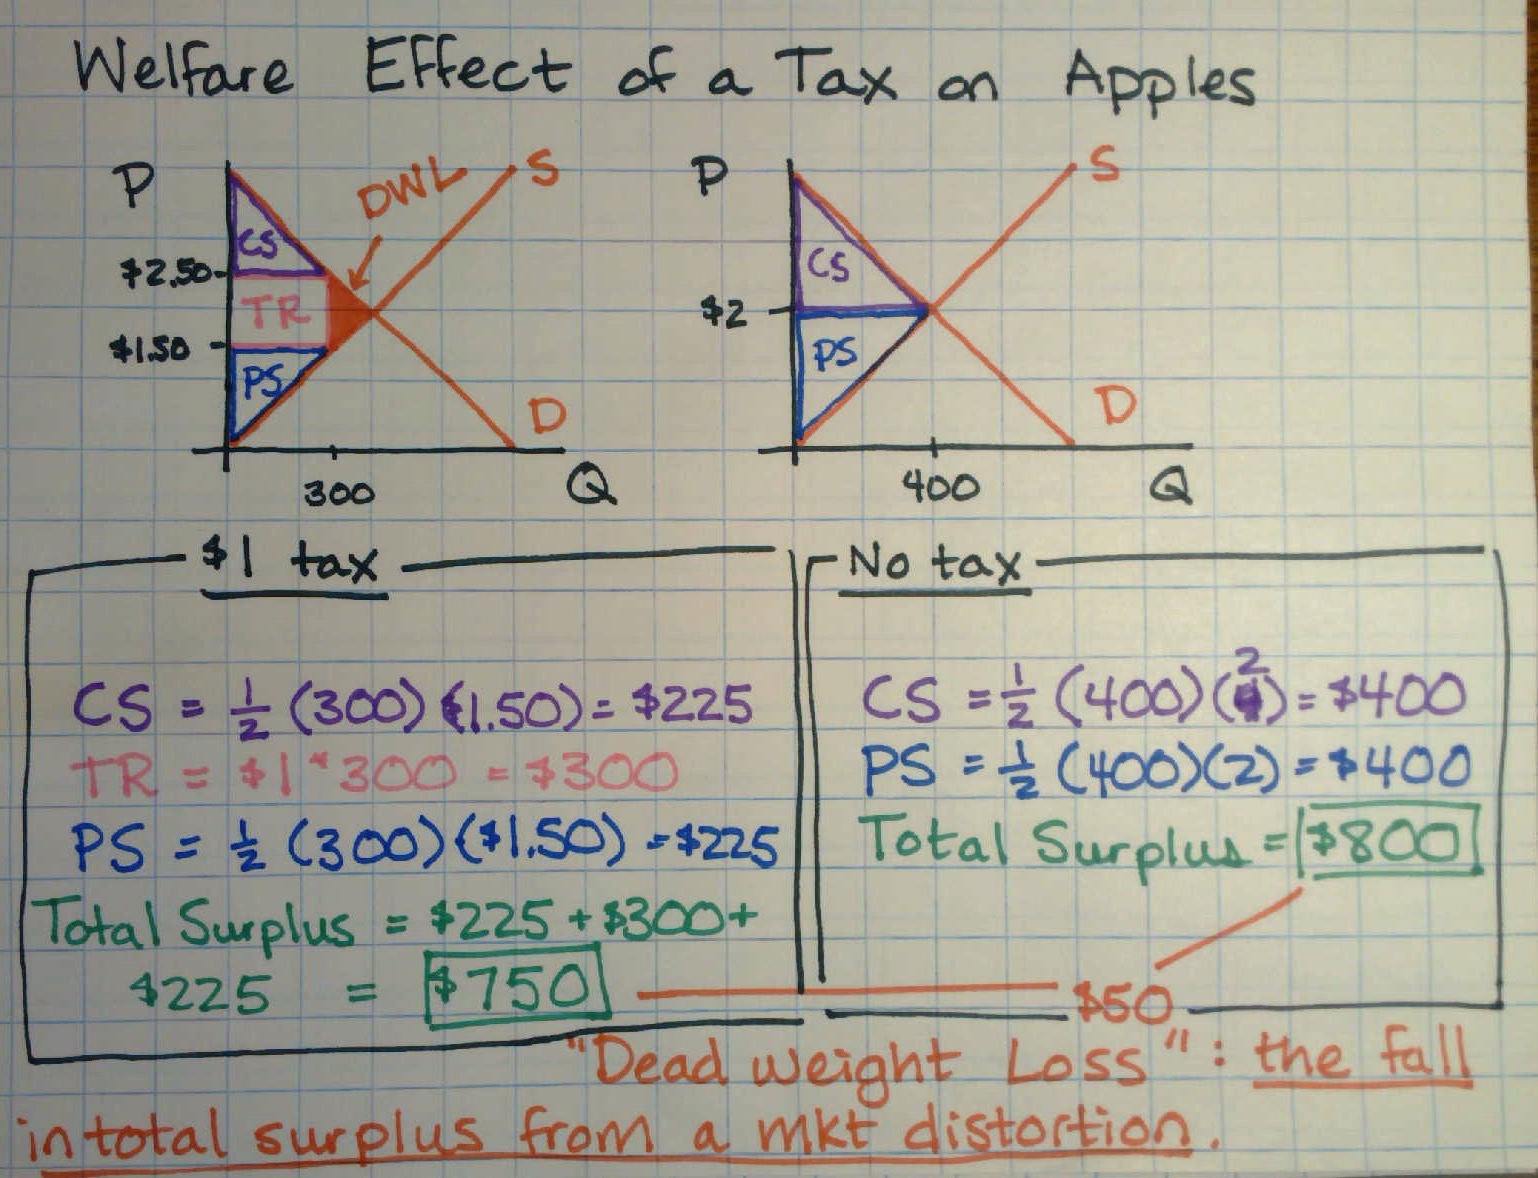 Welfare Effect of a Tax on Apples
P
DWL
S
CS
$2.50
TR
$1.50
PS
D
300
Q
P
S
CS
$2
PS
D
400
Q
$1 tax
CS = 1/2 (300) ($1.50) = $225
TR = $1 * 300 = $300
PS = 1/2 (300) ($1.50) = $225
Total Surplus = $225 + $300 +
$225 = $750
No tax
2
CS = 1/2 (400) ( ) = $400
PS = 1/2 (400) (2) = $400
Total Surplus = $800
$50
"Dead weight Loss" : the fall
in total surplus from a mkt distortion.